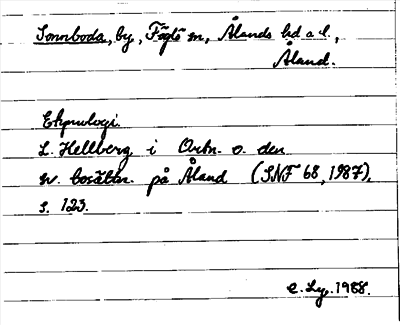 Sonnboda, by, Föglö sn, Ålands hd o.d.,
Åland.
Etymologi.
L. Hellberg i Ortn. o. den
sv. bosättn. på Åland (SNF 68, 1987),
s. 123.
e. Ly. 1988.